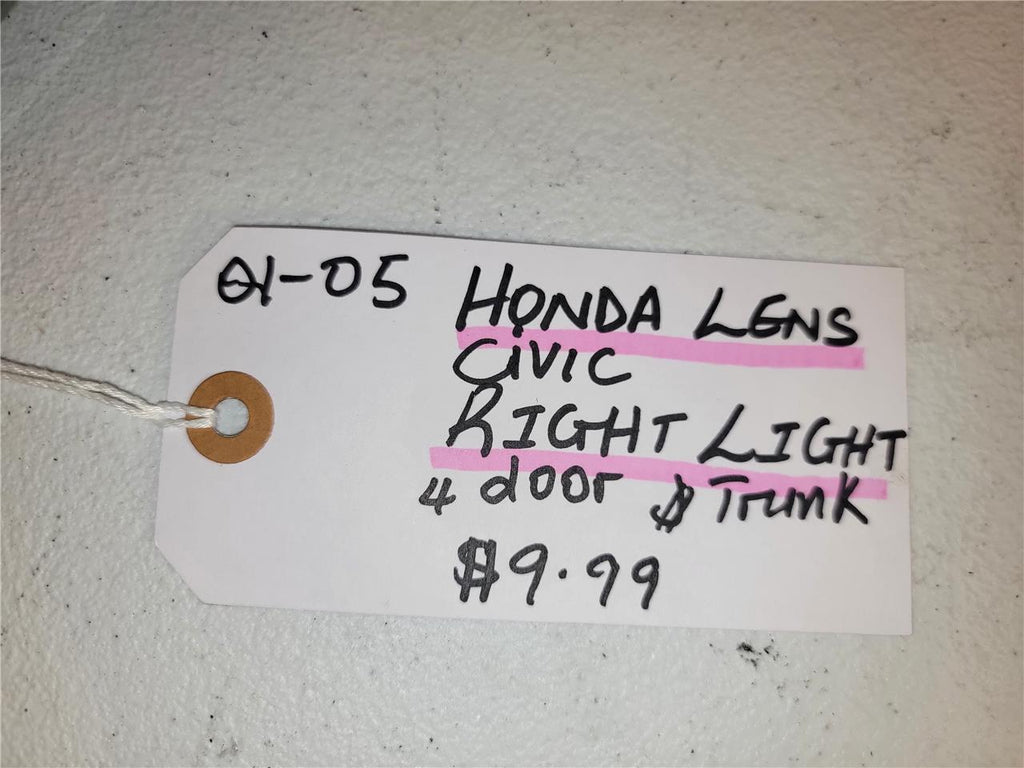 01-05
HONDA LENS
CIVIC
RIGHT LIGHT
4 door $ Trunk
$9.99